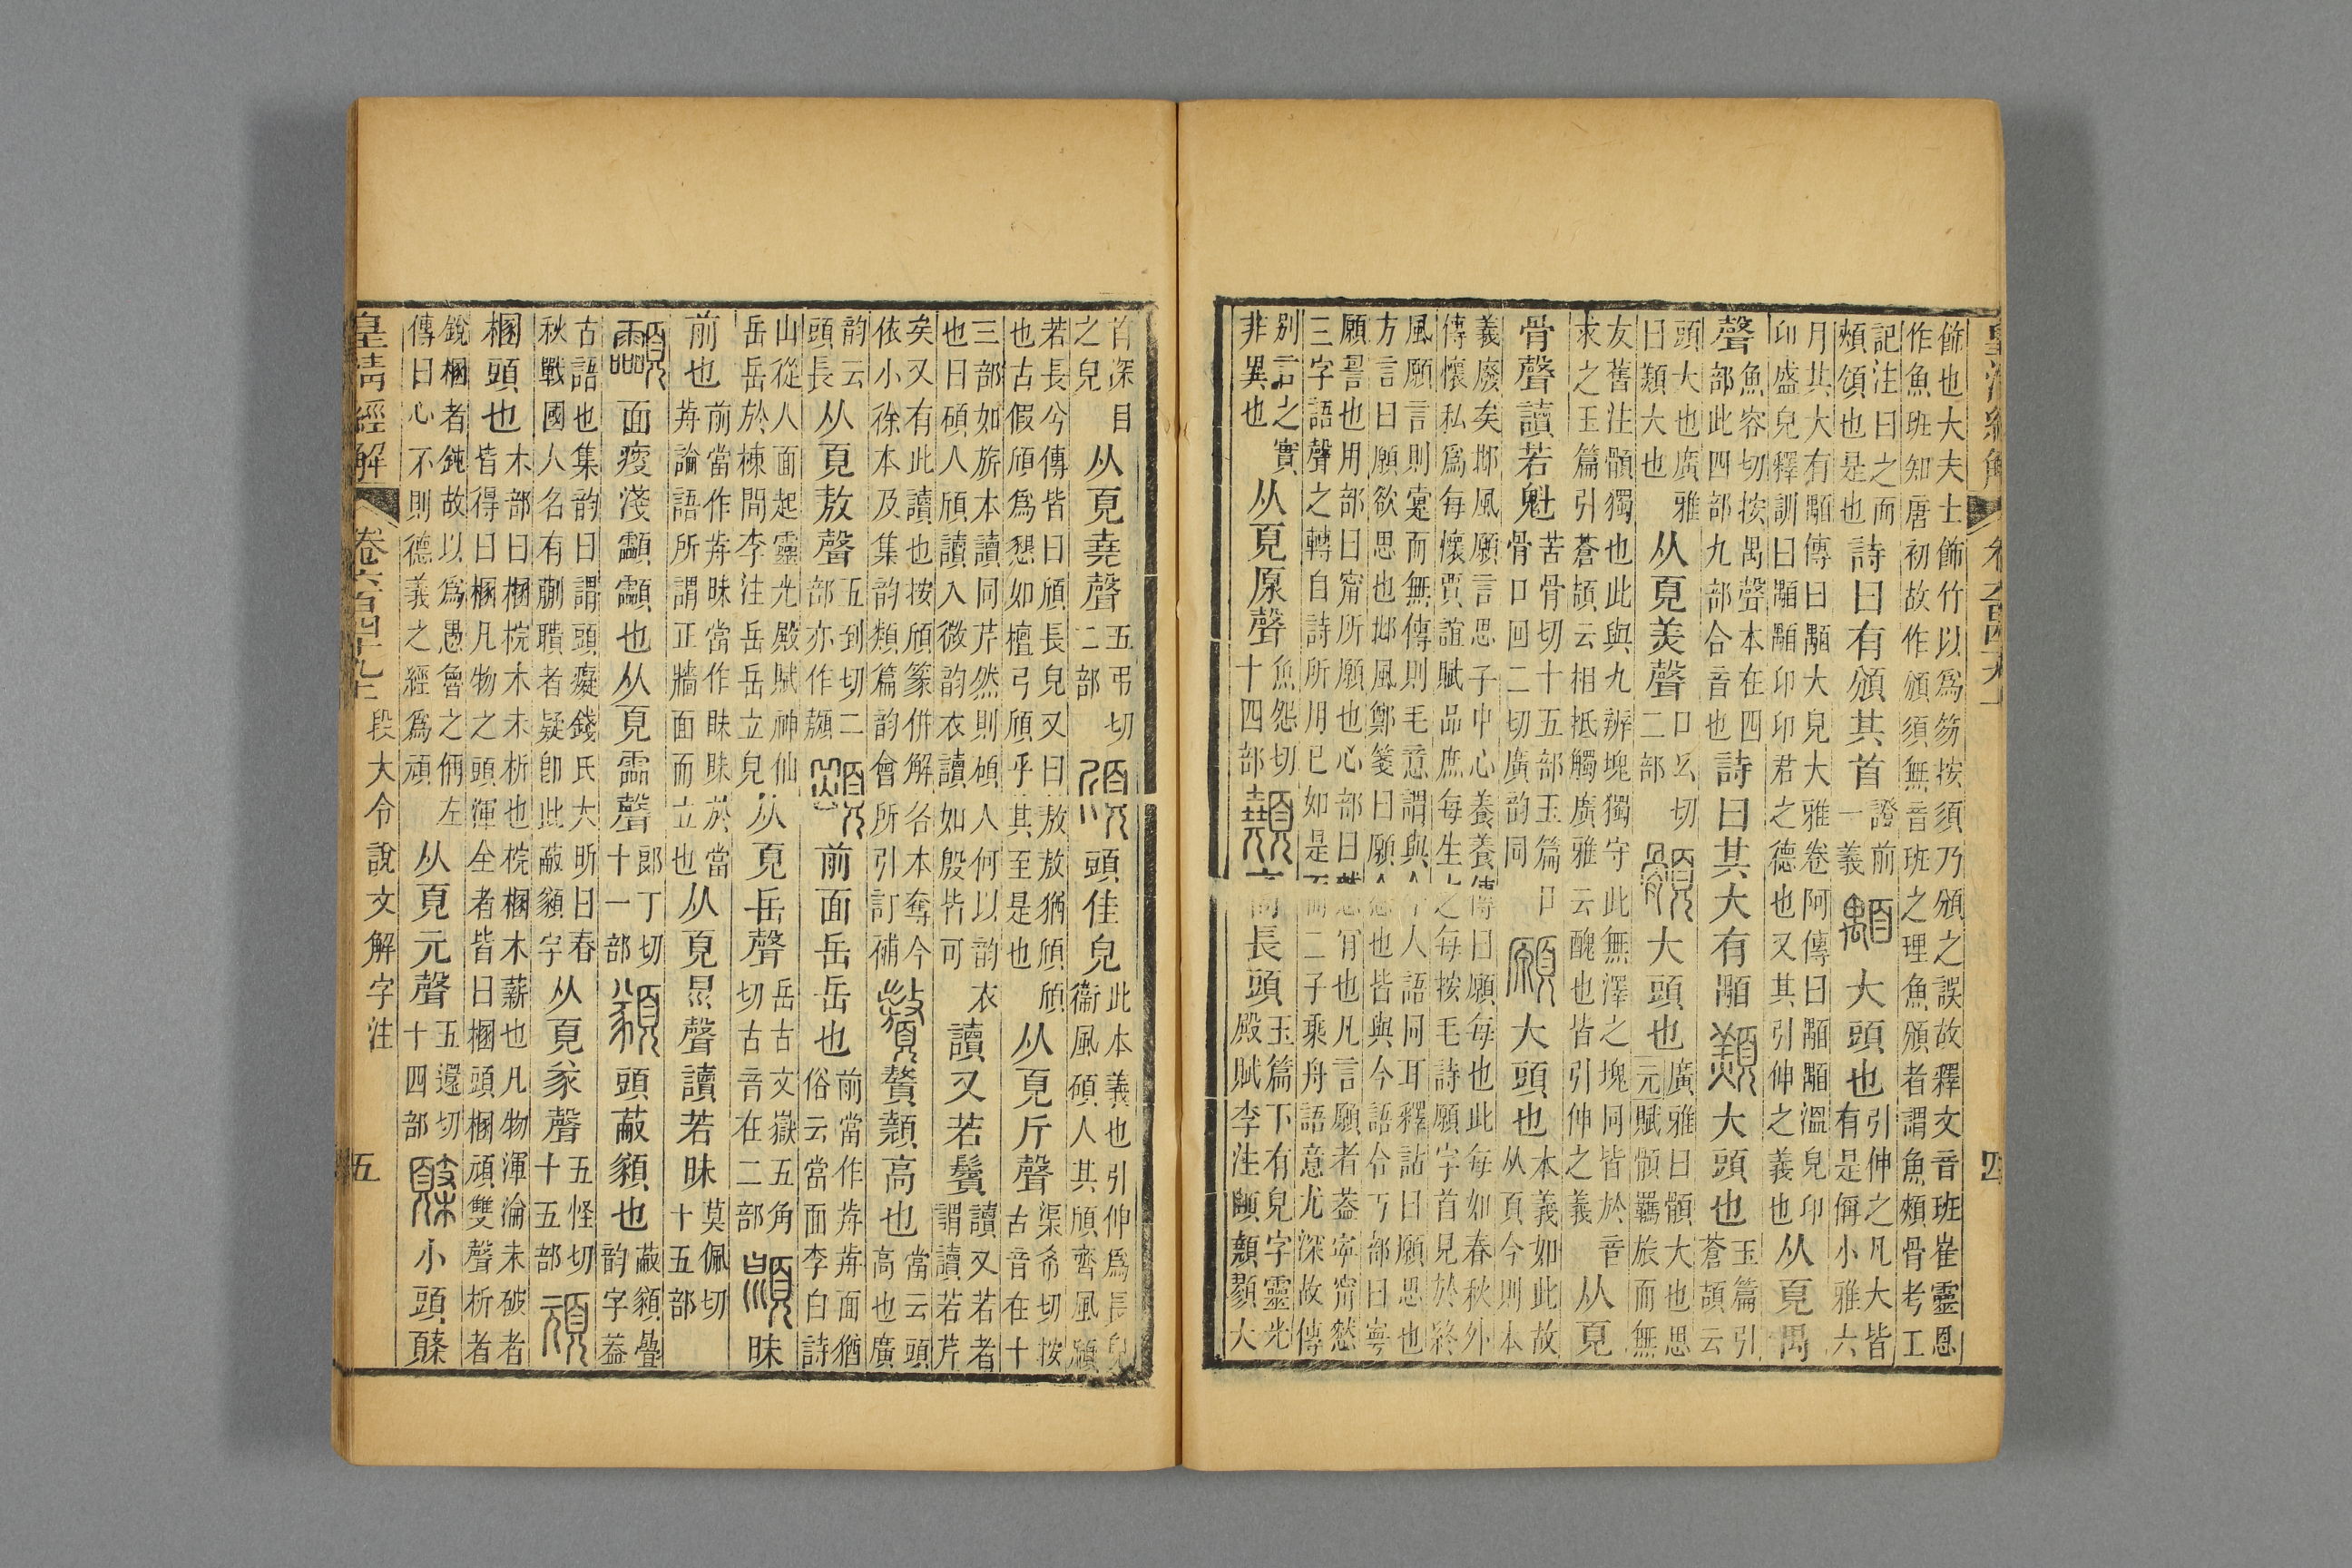 皇清經解
四
飾也大夫士飾竹以爲笏按須乃頒之誤故釋文音班崔靈恩
作魚班知唐初故作頒須無音班之理魚頒者謂魚頰骨考工
記注曰之而頰頜也是也詩曰有頒其首證前一義顒大頭也引伸之凡大皆有是偁小雅六
月其大有顒傳曰顒大皃大雅卷阿傳曰顒顒溫皃印
印盛皃釋訓曰顒顒印印君之德也又其引伸之義也从𩑋禺
聲魚容切按禺聲本在四部此四部九部合音也詩曰其大有顒䫞大頭也玉篇引蒼頡云
頭大也廣雅曰䫞大也从𩑋羔聲口幺切二部顝大頭也廣雅曰顝大也思元賦顝羈旅而無
友舊注顝獨也此與九辨塊獨守此無澤之塊同皆於音
求之玉篇引蒼頡云相抵觸廣雅云醜也皆引伸之義从𩑋
骨聲讀若魁苦骨切十五部玉篇口骨口回二切廣韵同願大頭也本義如此故从頁今則本
義廢矣邶風願言思子中心養養傳曰願每也此每如春秋外
傳懷私爲每懷賈誼賦品庶每生之每按毛詩願字首見於終
風願言則疐而無傳則毛意謂與今人語同耳釋詁曰願思也
方言曰願欲思也邶風鄭箋曰願念也皆與今語合丂部曰寧
願䛐也用部曰甯所願也心部曰憖肎也凡言願者葢寧甯憖
三字語聲之轉自詩所用已如是而二子乘舟語意尤深故傳
別言之實非異也从𩑋原聲魚怨切十四部顤高長頭玉篇下有皃字靈光殿賦李注顤顟顥大
首深目之皃从𩑋堯聲五弔切二部頎頭佳皃此本義也引伸爲長皃衞風碩人其頎齊風頎
若長兮傳皆曰頎長皃又曰敖敖猶頎頎也古假頎爲懇如檀弓頎乎其至是也从𩑋斤聲渠希切按古音在十
三部如旂本讀同芹然則碩人何以韵衣也曰碩人頎讀入微韵衣讀如殷皆可讀又若鬢讀又若者謂讀若芹
矣又有此讀也按頎篆併解各本奪今依小徐本及集韵類篇韵會所引訂補贅顤高也當云頭高也廣
韵云頭長从𩑋敖聲五到切二部亦作𩕀前面岳岳也前當作歬歬面猶俗云當面李白詩
山從人面起靈光殿賦神仙岳岳於棟間李注岳岳立皃从𩑋岳聲岳古文嶽五角切古音在二部昧
前也前當作歬昧當作眛眛於當歬論語所謂正牆面而立也从𩑋㫚聲讀若昧莫佩切十五部
顲面瘦淺顲顲也从𩑋霝聲郎丁切十一部頭蔽䫥也蔽䫥曡韵字葢
古語也集韵曰謂頭癡錢氏大昕曰春秋戰國人名有蒯聵者疑卽此蔽䫥字从𩑋豙聲五怪切十五部頑
梱頭也木部曰梱梡木未析也梡梱木薪也凡物渾淪未破者皆得曰梱凡物之頭渾全者皆曰梱頭梱頑雙聲析者
銳梱者鈍故以爲愚魯之偁左傳曰心不則德義之經爲頑从𩑋元聲五還切十四部小頭䫌
皇清經解
卷六百四十九上
段大令說文解字注
五